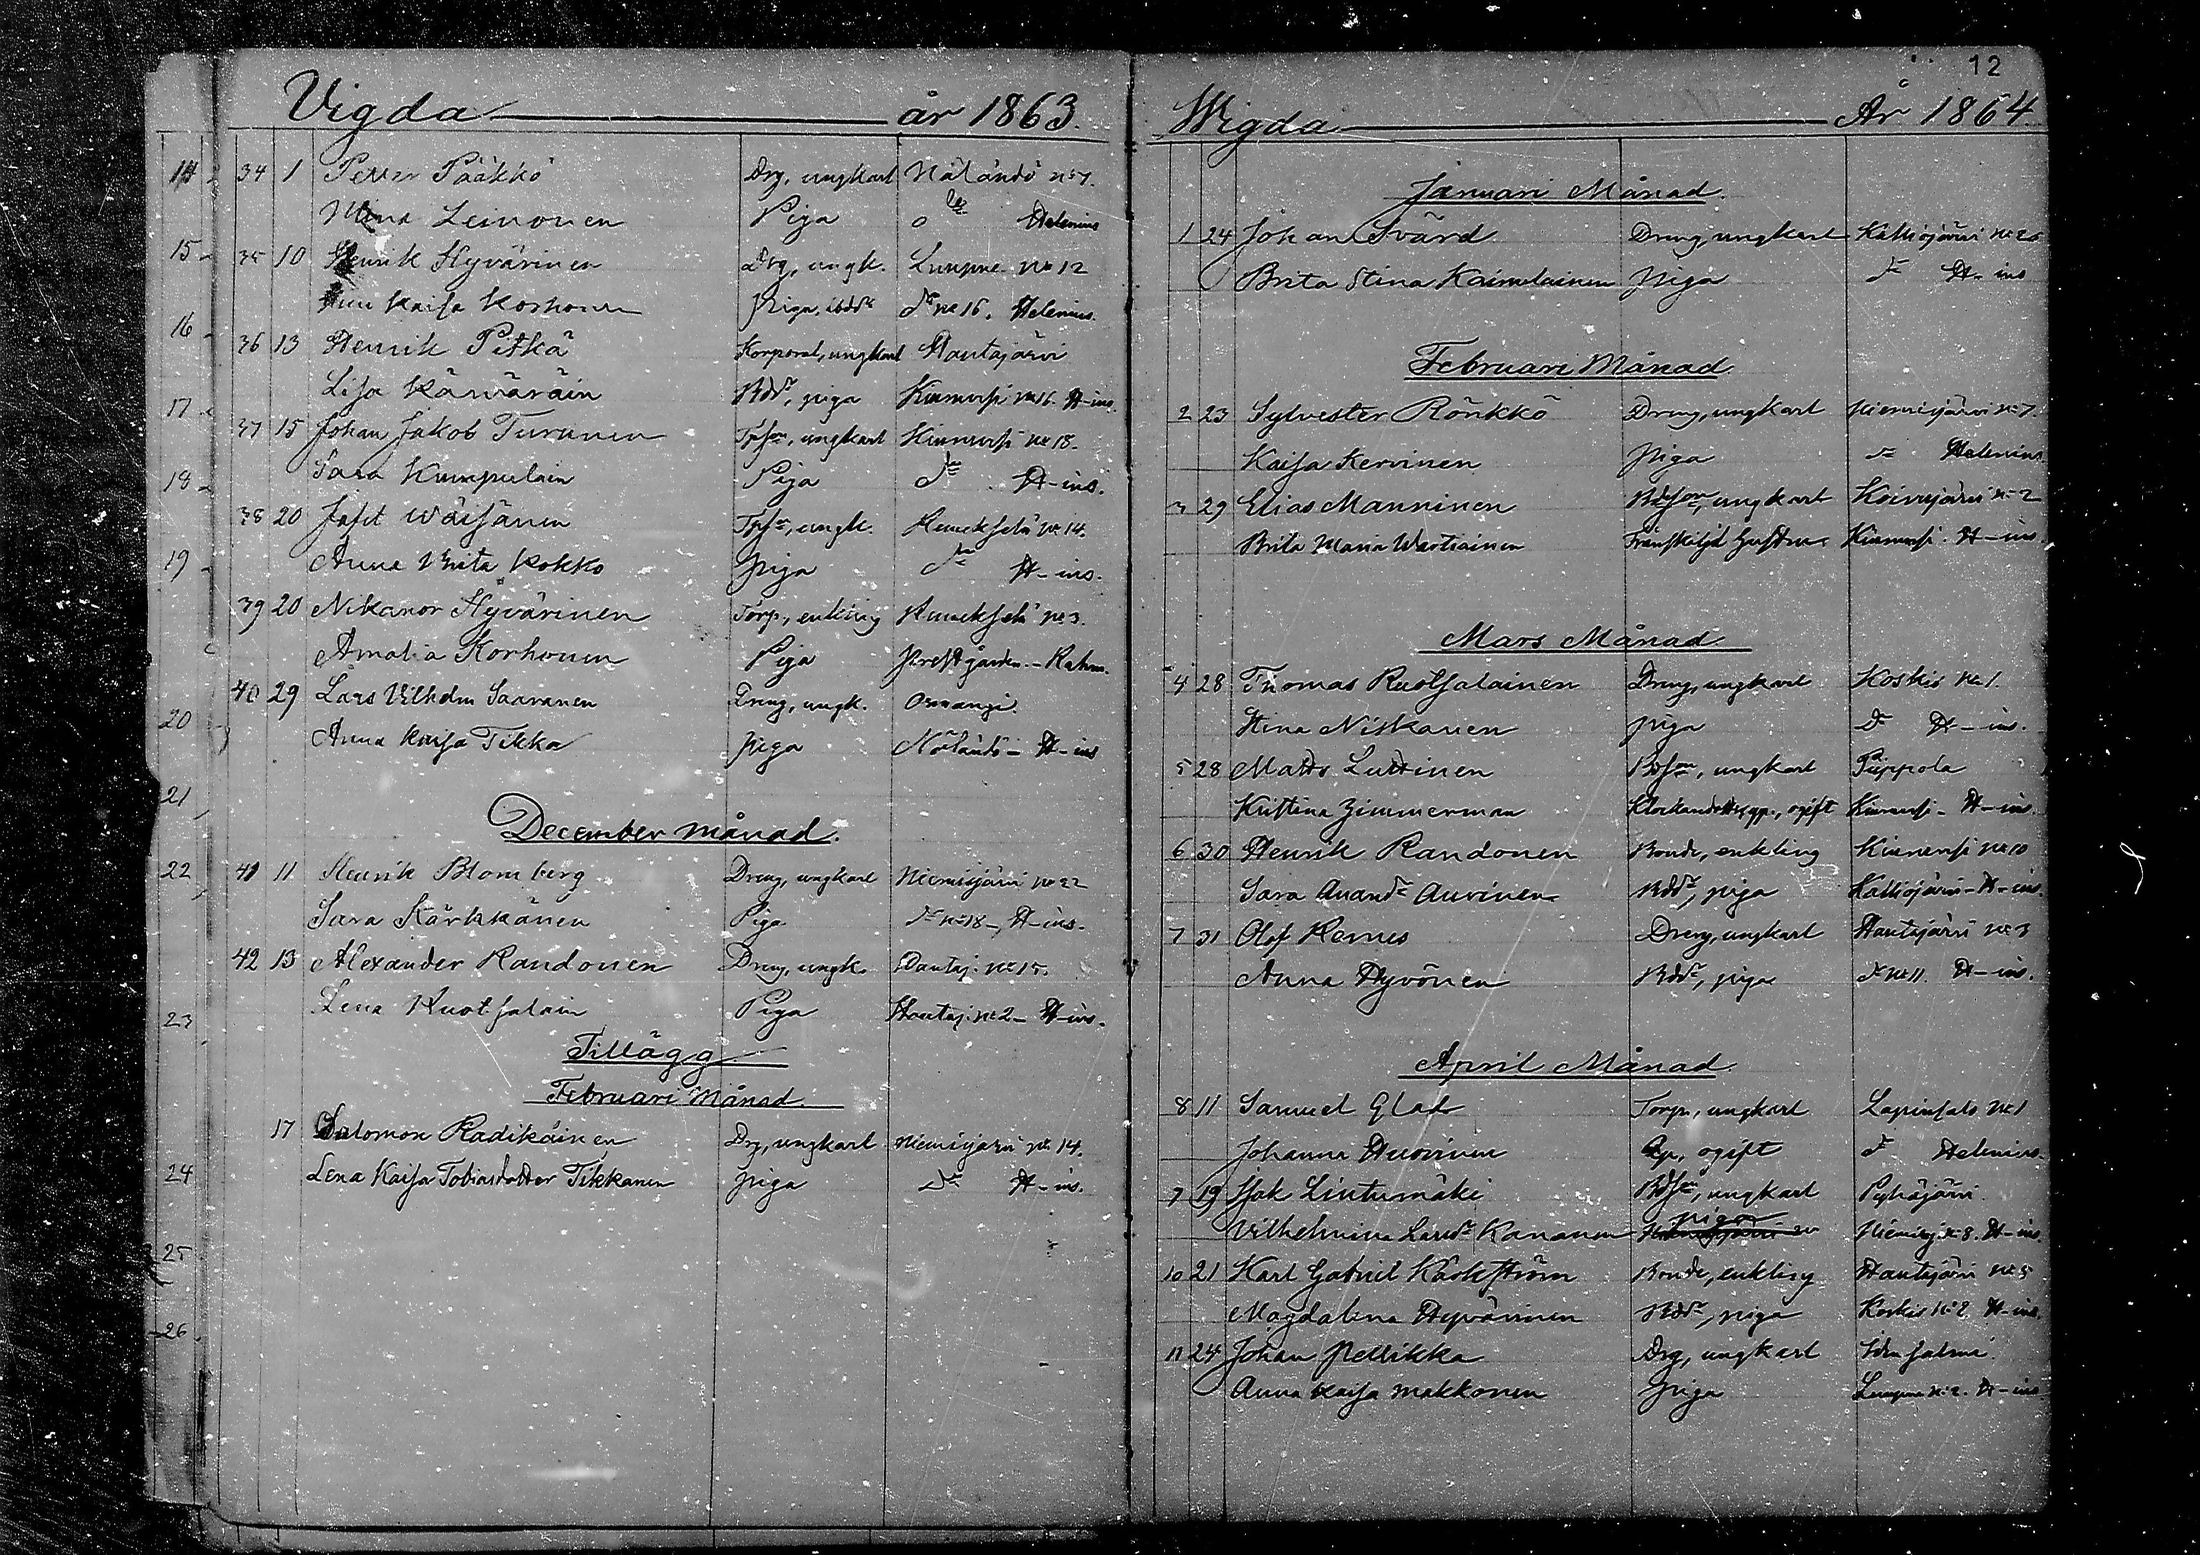 Vigda år 1863.
34 1 Petter Pääkkö Drg, ungkarl Näländö No 7.
Mina Leinonen Piga do Helenius
35 10 Henrik Hyvärinen Drg, ungk. Lumpne No 12
Kaisa Korhonen Piga No 16. Helenius.
36 13 Henrik Pitkä Korporal, ungkarl Hautajärvi
Lisa Kärväräin Bddr, piga No 16. H-ins.
37 15 Johan Jakob Turunen ungkarl No 18.
Sara Kumpulain Piga do H-ins.
38 20 Jafet Wäisänen ungk. No 14.
Anna Brita Kokko Piga do H-ins.
39 20 Nikanor Hyvärinen Torp., enkling No 3.
Amalia Korhonen Piga Prestgården
40 29 Lars Vilhelm Saaranen Dreng, ungk. Osmangi.
Anna Kaisa Tikka Piga H-ins
December månad.
41 11 Henrik Blomberg Dreng, ungkarl Niemisjärvi No 22
Sara Kärkkänen Piga do No 18 - H-ins.
42 13 Alexander Randonen Dreng, ungk. Hautaj. No 15.
Lena Ruotsalain Piga Hautaj. No 2 - H-ins.
Tillägg
Februari Månad.
17 Salomon Radikäinen Drg, ungkarl Niemisjärvi No 14.
Lena Kaisa Tobiasdotter Tikkanen piga do H-ins.
14
15
16
17
18
19
20
21
22
23
24
25
26
12
Wigda År 1864
Januari Månad.
1 24 Johan Svärd Dreng, ungkarl Kälkiäjärvi
Brita Stina Kainulainen Piga do H-ins
Februari Månad
2 23 Sylvester Rönkkö Dreng, ungkarl Niemisjärvi No 7.
Kaisa Kervinen Piga do Helenius
3 29 Elias Manninen ungkarl Koivujärvi No 2
Brita Maria Wartiainen H-ins.
Mars Månad
4 28 Thomas Ruotsalainen Dreng, ungkarl Koskis No 1.
Stina Niskanen piga do H-ins.
5 28 Matts Luttinen ungkarl Piippola
Kristina Zimmerman ogift H-ins.
6 30 Henrik Randonen Bonde, enkling No 10
Sara Anandr Auvinen Bdr, piga H-ins.
7 31 Olof Remes Dreng, ungkarl Hautajärvi No 3
Anna Hyvönen Bddr, piga do No 11. H-ins.
April Månad
8 11 Samuel Glad Torp., ungkarl Lapinsalo No 1
Johanna Huovinen ogift do Helenius.
7 19 Isak Lintumäki ungkarl Pyhäjärvi.
Vilhelmina Larsdr Kananen pigan Niemisj No 8. H-ins.
10 21 Karl Gabriel Käckström Bonde, enkling Hautajärvi No 5
Magdalena Hyvärinen Bddr, piga Koskis No 2 H-ins.
11 24 Johan Pellikka Drg, ungkarl Idensalmi.
Anna Kaisa Makkonen Piga H-ins